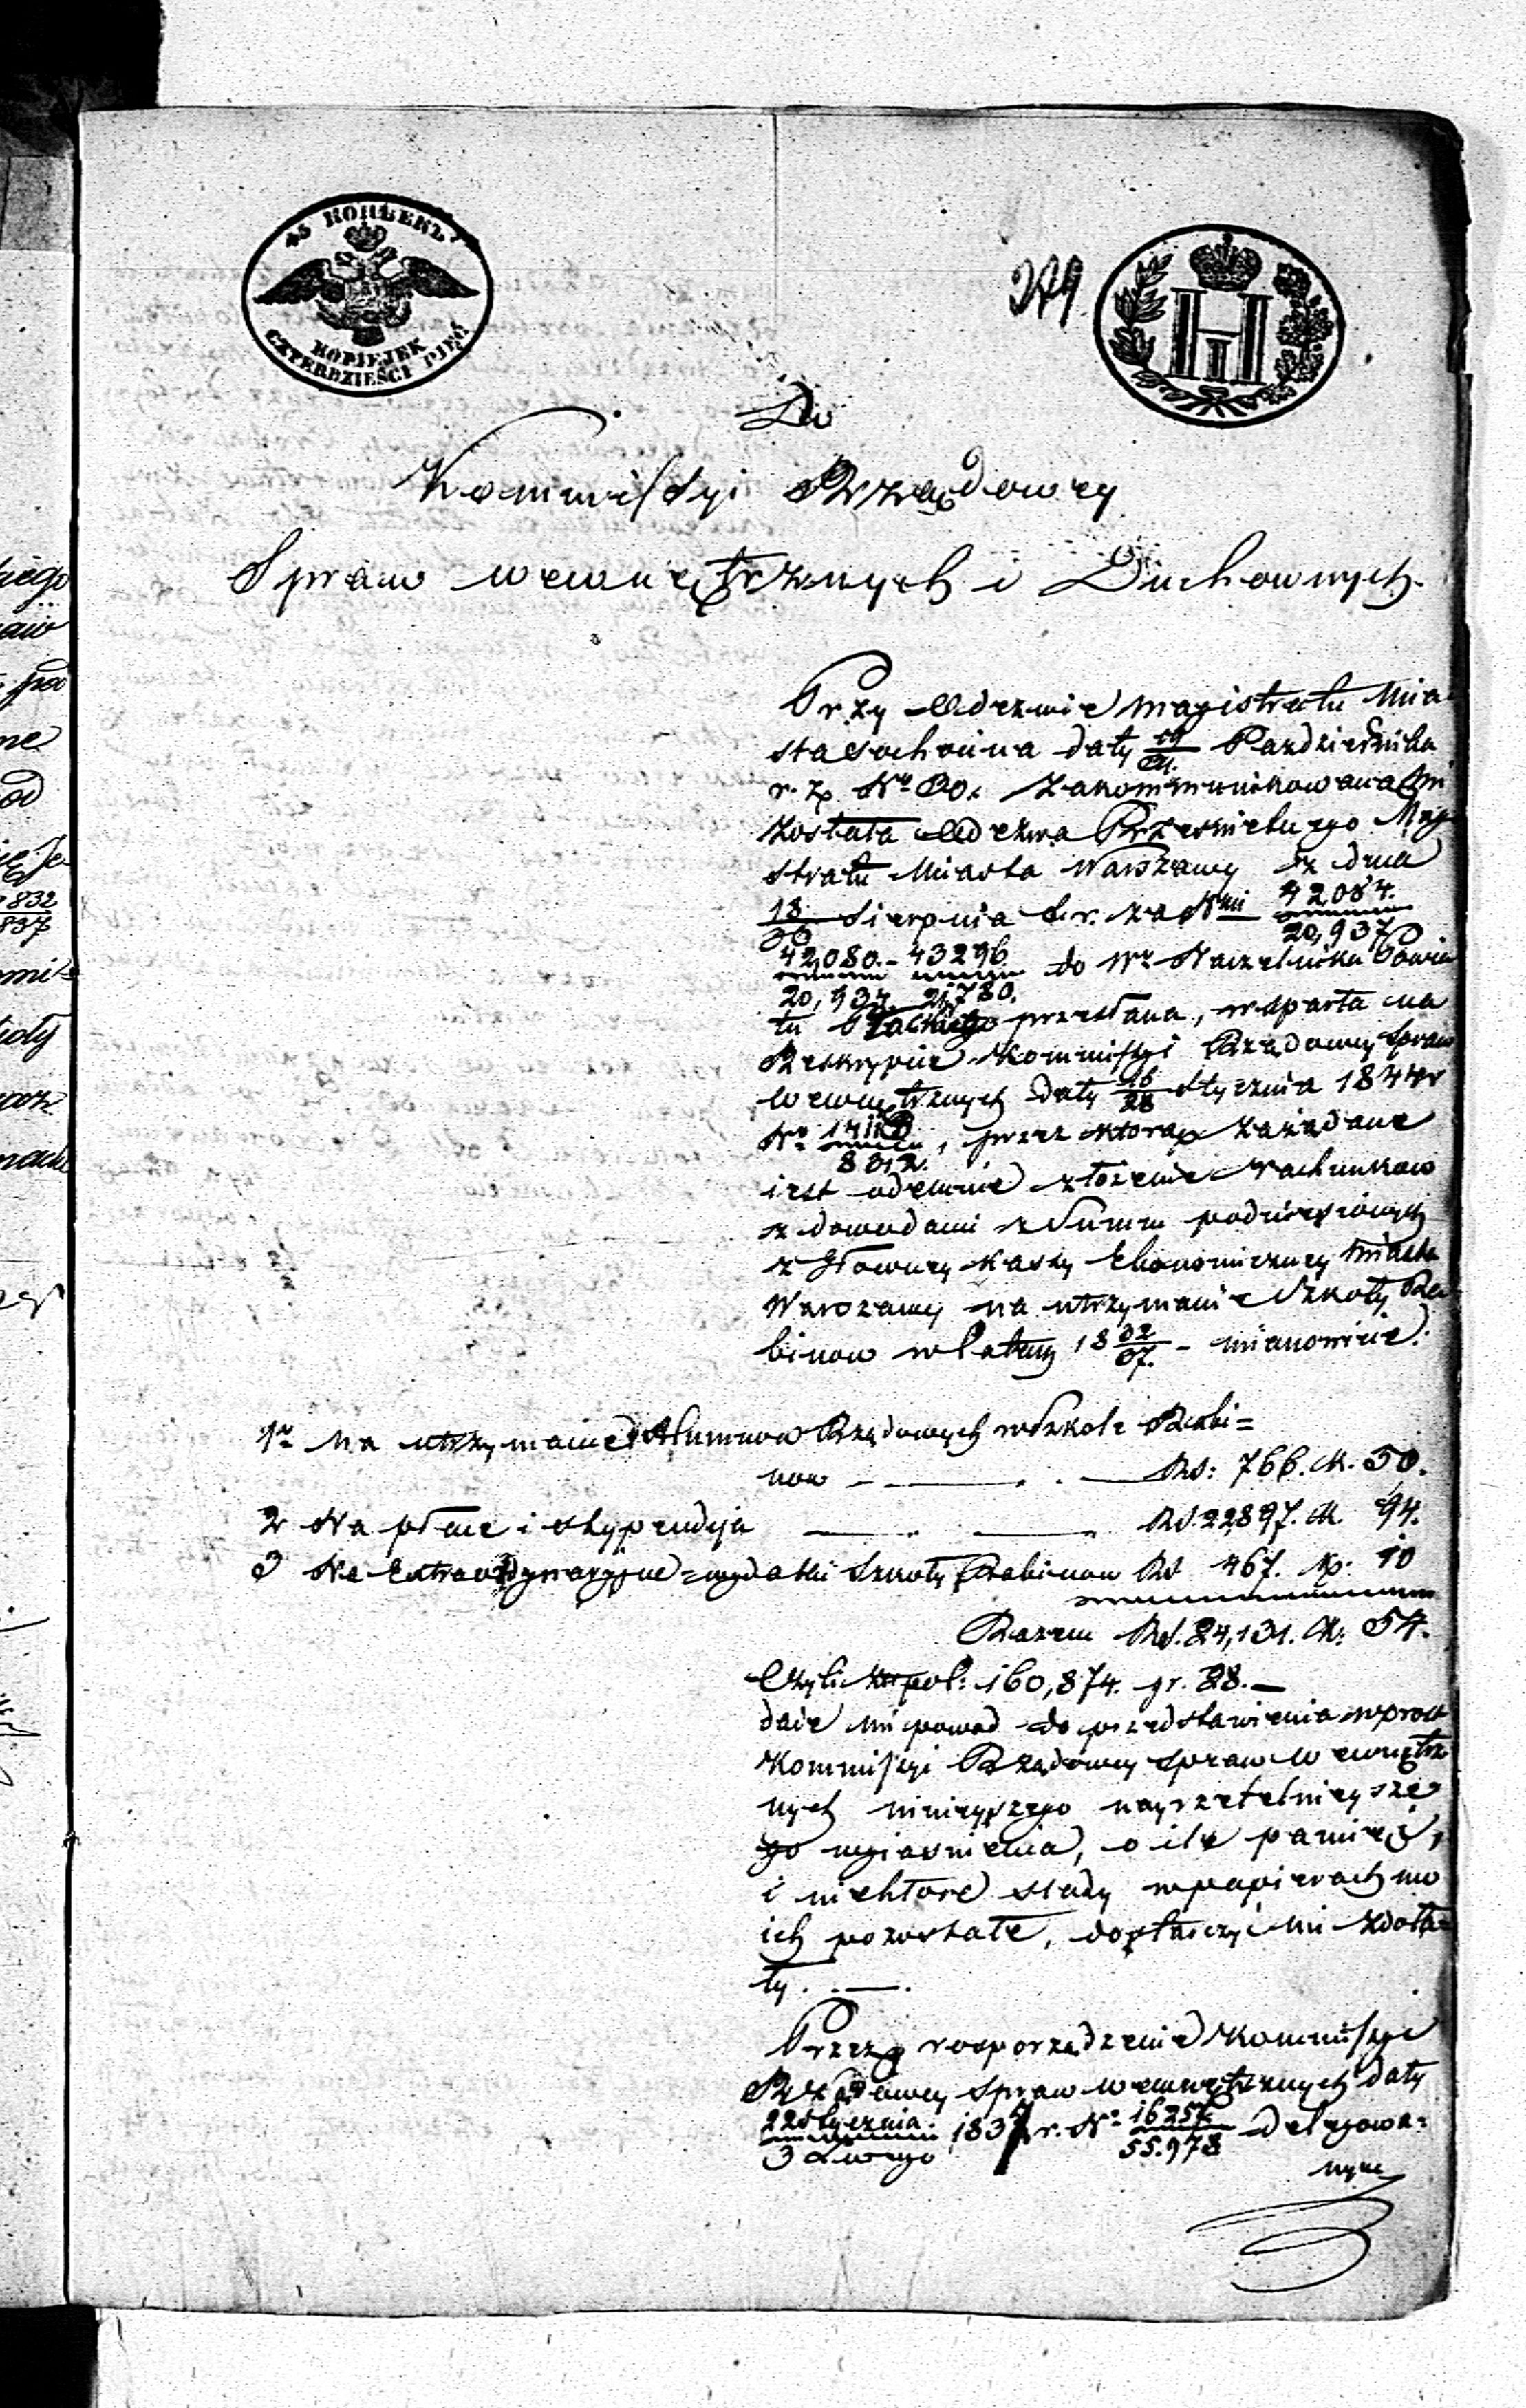 45 КОПѢЕКЪ
KOPIEJEK
CZTERDZIEŚCI PIĘĆ
Do
Kommissyi Rządowey
Spraw wewnętrznych i Duchownych.
Przy Odezwie Magistratu Mia
sta Sochocina daty Pazdziernika
r. z. Nr zakommunikowana mi
została Odezwa Prześwietnego Magi
stratu Miasta Warszawy z dnia
18/30 Sierpnia t. r. za Nrmi 42,084./20,937
42,080./20,934. - 43296/21,780. do Wo Naczelnika Powia
tu przesłana, wsparta na
Reskrypcie Kommissyi Rządowey Spraw
Wewnętrznych daty 16/28 Stycznia 1844r
Nr, przez którą zażądane
iest odemnie złożenie rachunkow
z dowodami z Summ podniesionych
z Głowney Kassy Ekonomiczney Miasta
Warszawy na utrzymanie Szkoły Ra
binow w latach 18 32/37. - mianowicie:
1o Na utrzymanie Alumnow Rządowych w Szkole Rabi=
now Rs: 766. k. 50.
2 Na płace i stypendyja Rs. 22897. k. 94.
3 Na Extraordynaryjne wydatki Szkoły Rabinow Rs 467. kp. 10
Razem Rs. 24,131. k: 54.
Czyli złpol: 160,874. gr. 28.
daie mi powod do przedstawienia wprost
Kommissyi Rządowey Spraw Wewnętrz
nych ninieyszego nayrzetelnieysze
go wyiaśnienia, o ile pamięć,
i niektóre slady w papierach mo
ich pozostałe, dostarczyć mi zdoła=
ły.
Przez rosporządzenie Kommissyi
Rządowey Spraw Wewnętrznych daty
22 Stycznia/3 Lutego 1837 r. No 16257/55.978 delegowa=
nym